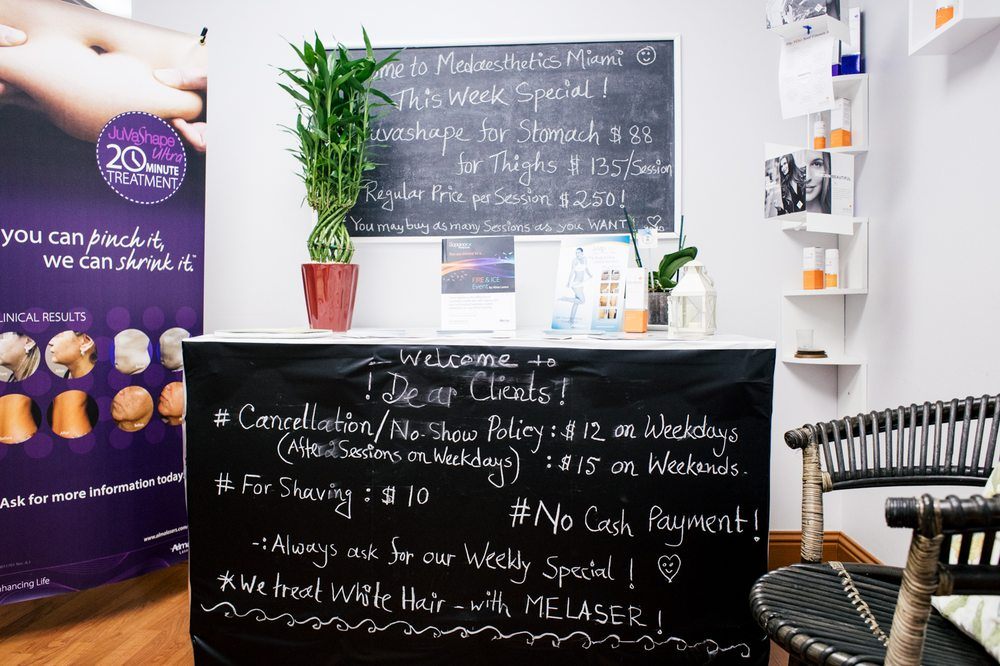 JuVaShape
Ultra
20 MINUTE
TREATMENT
you can pinch it,
we can shrink it.™
CLINICAL RESULTS
Ask for more information today!
Enhancing Life
me to Medaesthetics Miami
This Week Special!
Juvashape for Stomach $ 88
for Thighs $ 135/Session
Regular Price per Session $250!
You may buy as many Sessions as you WANT!
FIRE & ICE
Event
- Welcome to
! Dear Clients!
# Cancellation/No-Show Policy: $ 12 on Weekdays
(After 2 Sessions on Weekdays) : $ 15 on Weekends.
# For Shaving : $ 10
# No Cash Payment!
-: Always ask for our Weekly Special!
* We treat White Hair - with MELASER!